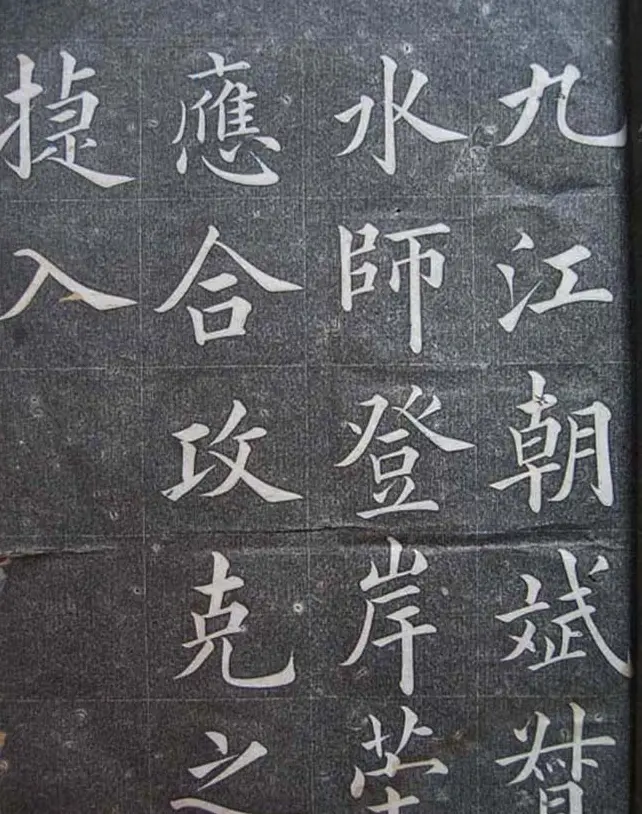 九江朝斌督
水師登岸策
應合攻克之
捷入